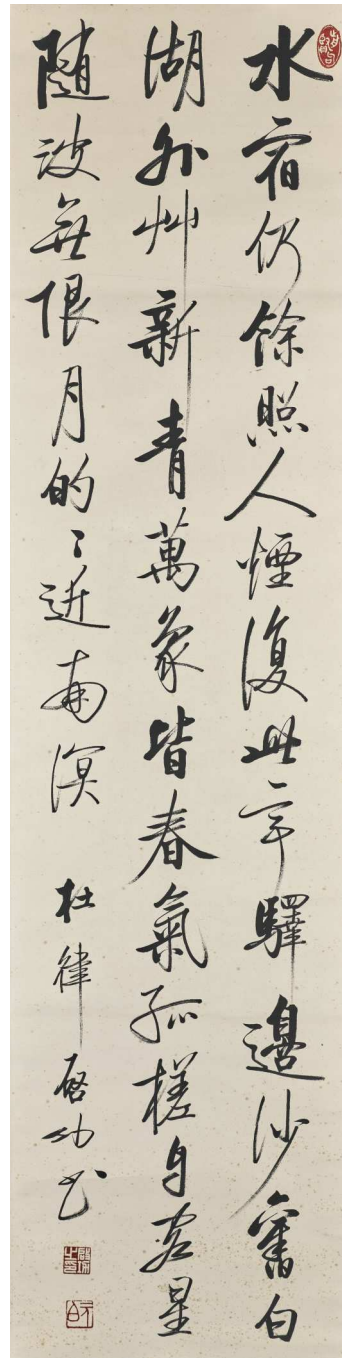 水宿仍餘照人煙復此亭驛邊沙舊白
湖外艸新青萬象皆春氣孤槎自客星
隨波無限月的〻近南溟 杜律 啓功書
啓功之印
元白